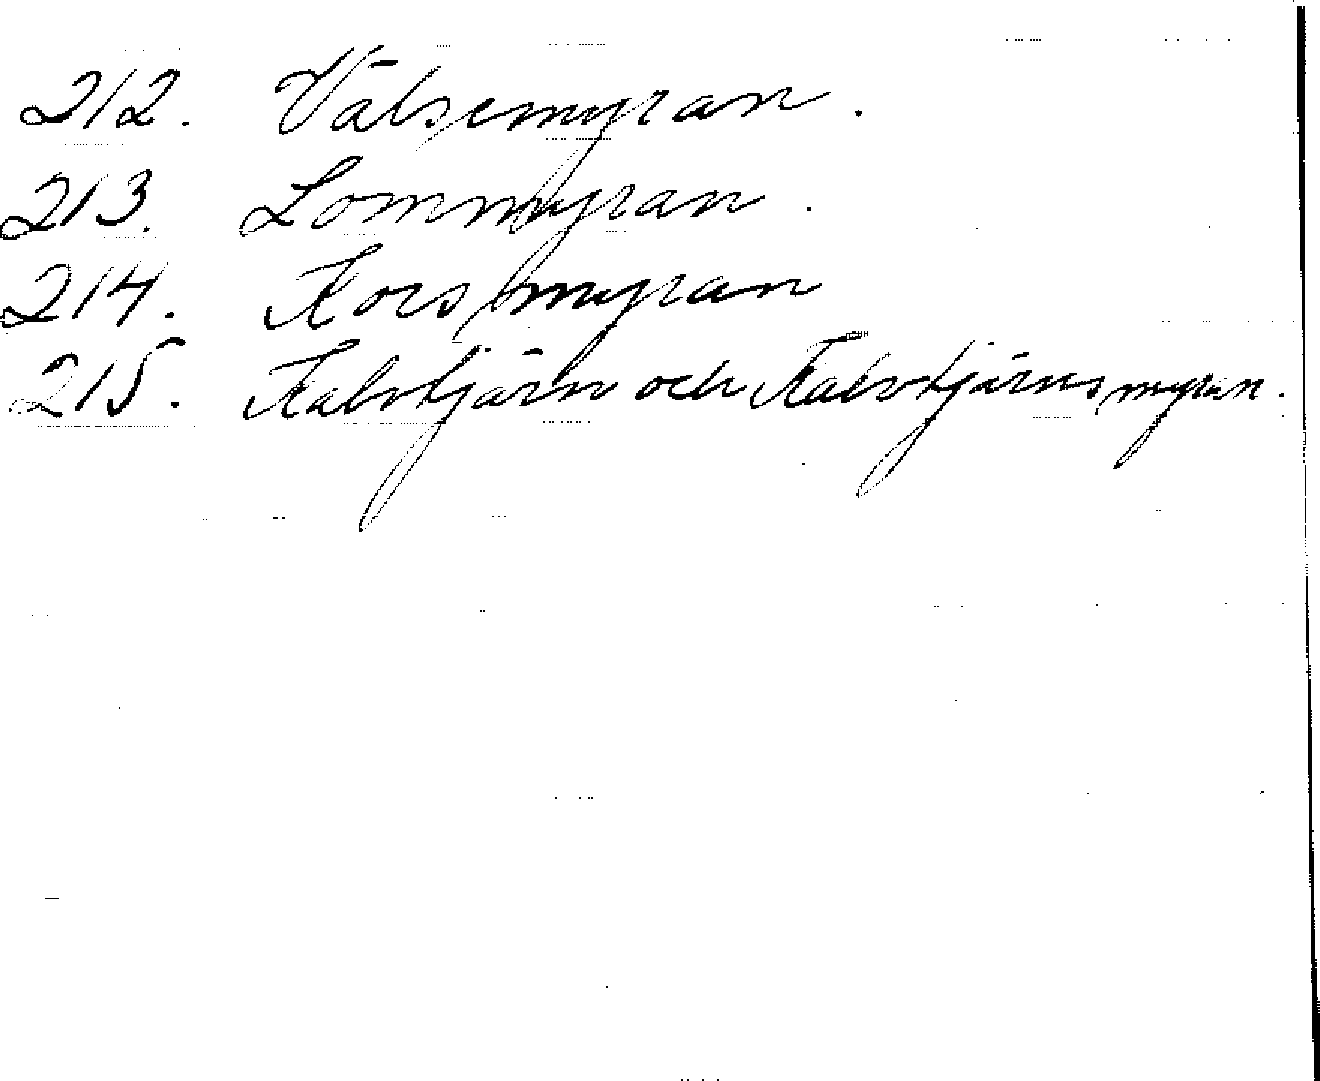 212. Välsemyran.
213. Lommyran.
214. Korsmyran
215. Kalvtjärn och Kalvtjärnsmyran.